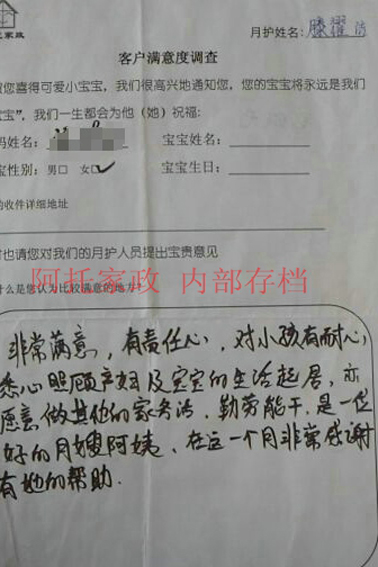 家政
月护姓名：滕耀
客户满意度调查
您喜得可爱小宝宝，我们很高兴地通知您，您的宝宝将永远是我们
宝宝”，我们一生都会为他（她）祝福：
妈姓名： 宝宝姓名：
宝性别：男□ 女□✓ 宝宝生日：
的收件详细地址
时也请您对我们的月护人员提出宝贵意见
阿托家政 内部存档
什么是您认为比较满意的地方？
非常满意，有责任心，对小孩有耐心，
悉心照顾产妇及宝宝的生活起居，亦
愿意做其他的家务活，勤劳能干，是一位
好的月嫂阿姨，在这一个月非常感谢
有她的帮助．